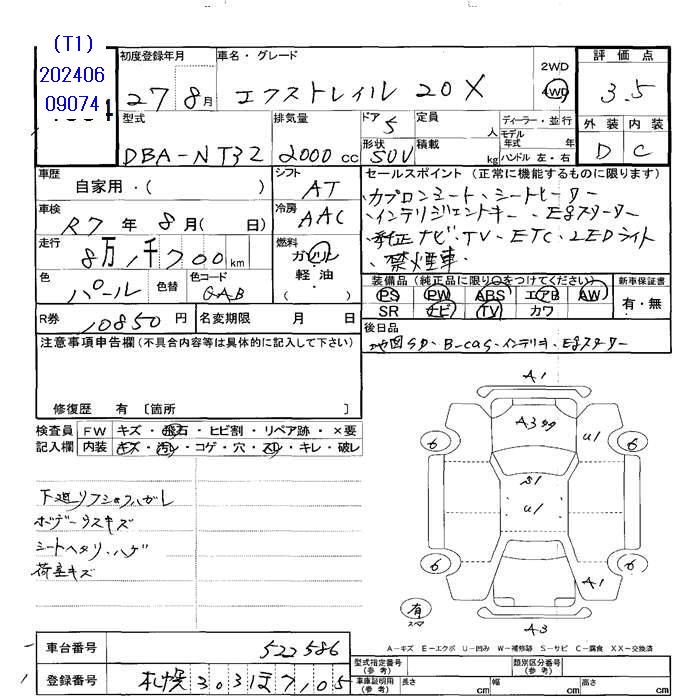 (T1)
202406
09074
初度登録年月
27 8月
車名・グレード
エクストレイル 20X
2WD
4WD
評価点
3.5
外装 内装
D C
型式
DBA-NT32
排気量
2000 cc
ドア
5
形状
SUV
定員
人
積載
kg
ディーラー・並行
モデル年式 年
ハンドル 左・右
車歴
自家用・( )
シフト
AT
車検
R7年 8月( 日)
冷房
AAC
走行
8万1千700 km
燃料
ガソリン
軽油
( )
色
パール
色替
色コード
QAB
R券
10850円
名変期限 月 日
セールスポイント(正常に機能するものに限ります)
・カプロンシート、シートヒーター
・インテリジェントキー、Egスターター
・純正ナビ・TV・ETC・LEDライト
・禁煙車
装備品(純正品に限り○をつけてください)
PS PW ABS エアB AW
SR ナビ TV カワ
新車保証書
有・無
後日品
地図SD、B-cas、インテリキ、Egスターター
注意事項申告欄(不具合内容等は具体的に記入して下さい)
修復歴 有〔箇所 〕
検査員記入欄
FW キズ・飛石・ヒビ割・リペア跡・×要
内装 キズ・汚れ・コゲ・穴・スレ・キレ・破レ
下廻りフショクハガレ
ボデーウスキズ
シートヘタリ・ハゲ
荷室キズ
A1
A3
U1
6
6
S1
U1
6
6
A1
有
スペ
A3
A-キズ E-エクボ U-凹み W-補修跡 S-サビ C-腐食 XX-交換済
車台番号
522586
登録番号
札幌 303 ほ 7105
型式指定番号(参考)
類別区分番号(参考)
車庫証明用(参考)
長さ cm 幅 cm 高さ cm